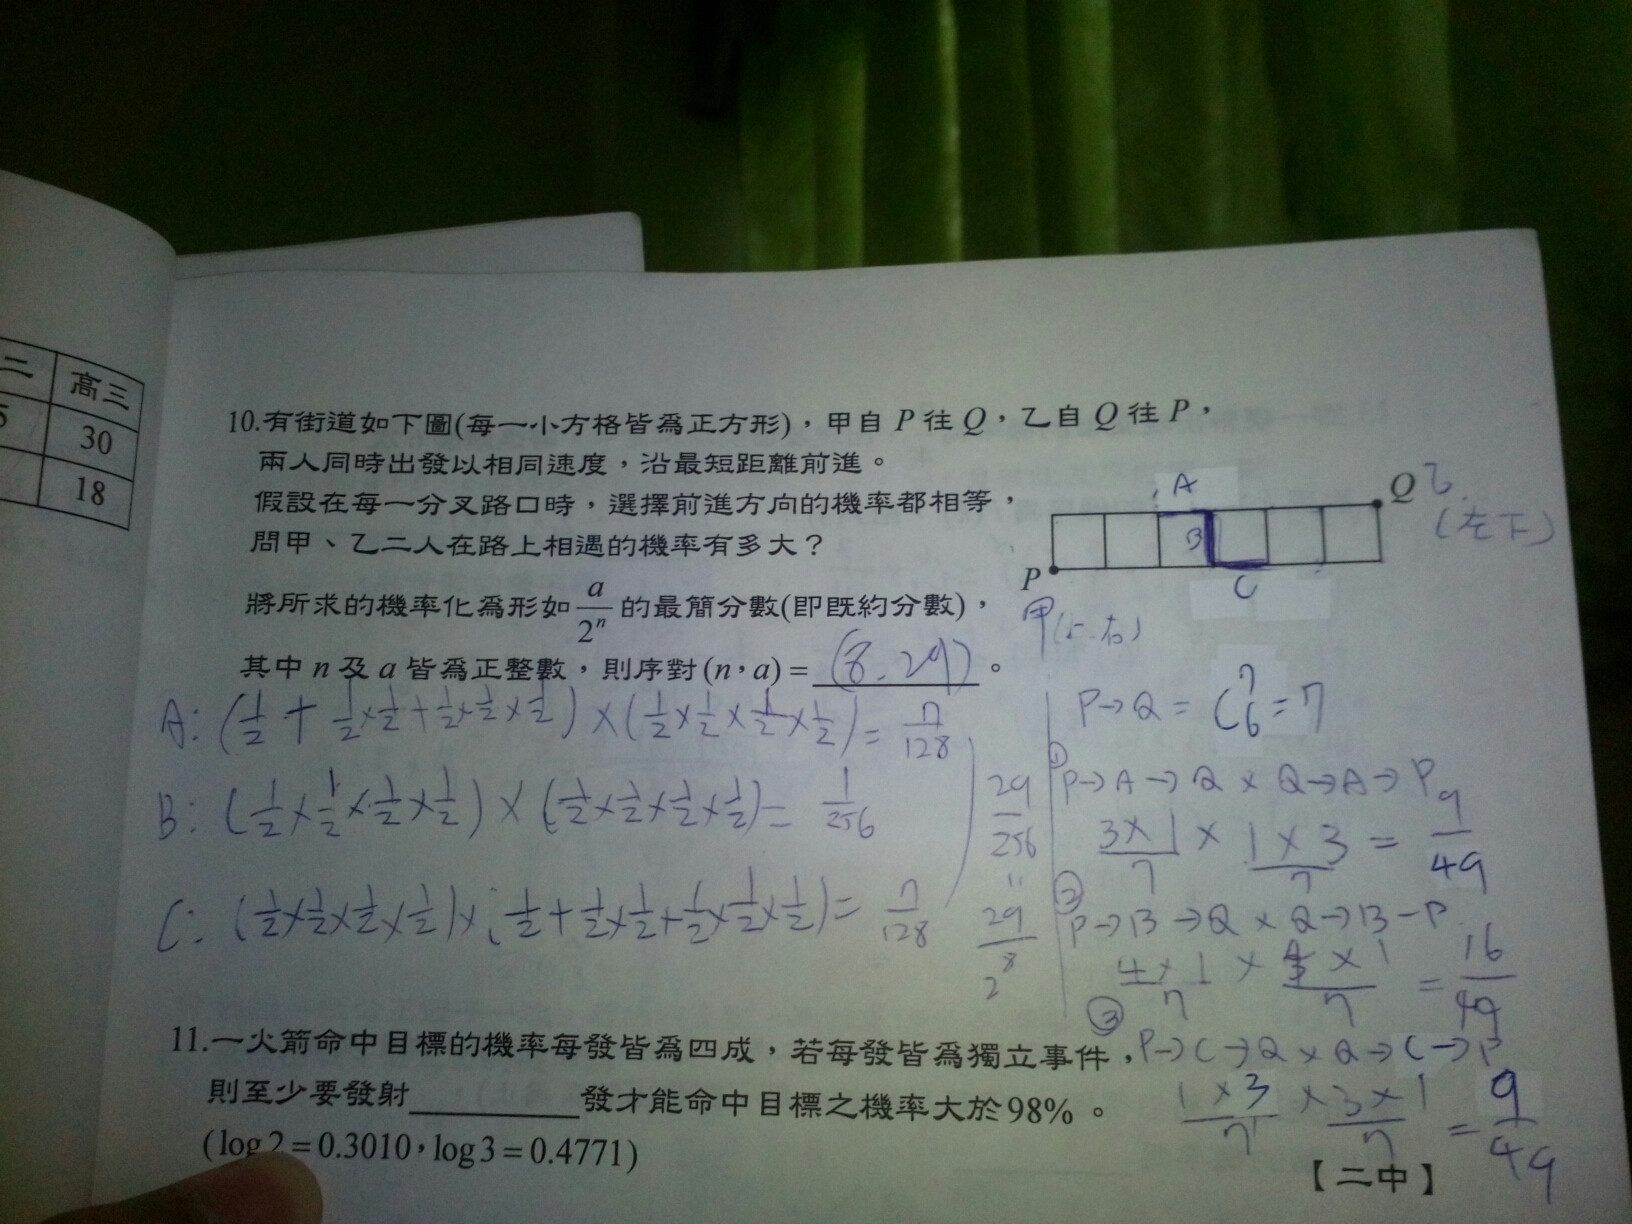 二 高三
5 30
18
10.有街道如下圖(每一小方格皆為正方形)，甲自 P 往 Q，乙自 Q 往 P，
兩人同時出發以相同速度，沿最短距離前進。
假設在每一分叉路口時，選擇前進方向的機率都相等，
問甲、乙二人在路上相遇的機率有多大？
將所求的機率化為形如 a/2ⁿ 的最簡分數(即既約分數)，
其中 n 及 a 皆為正整數，則序對 (n，a) = (8.29) 。
A
B
C
P
Q 乙
(左下)
甲(上.右)
A: (1/2 + 1/2×1/2 + 1/2×1/2×1/2) × (1/2×1/2×1/2×1/2) = 7/128
B: (1/2×1/2×1/2×1/2) × (1/2×1/2×1/2×1/2) = 1/256
C: (1/2×1/2×1/2×1/2) × (1/2 + 1/2×1/2 + 1/2×1/2×1/2) = 7/128
29/256
=
29/2⁸
P→Q = C⁷₆ = 7
① P→A→Q × Q→A→P
3×1/7 × 1×3/7 = 9/49
② P→B→Q × Q→B-P
4×1/7 × 4×1/7 = 16/49
③ P→C→Q × Q→C→P
1×3/7 × 3×1/7 = 9/49
11.一火箭命中目標的機率每發皆為四成，若每發皆為獨立事件，
則至少要發射________發才能命中目標之機率大於98%。
(log2 = 0.3010，log3 = 0.4771)
【二中】